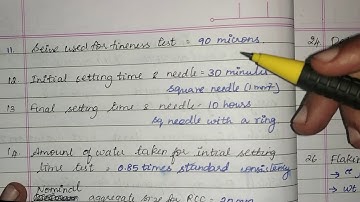 11. Seive used for fineness test = 90 microns.
12 Initial setting time & needle = 30 minutes
square needle (1 mm²)
13 Final setting time & needle = 10 hours
sq needle with a ring
14. Amount of water taken for intial setting
time test = 0.85 times standard consistency
Nominal
aggregate size for RCC = 20 mm
24
26
Flakin
→ wt